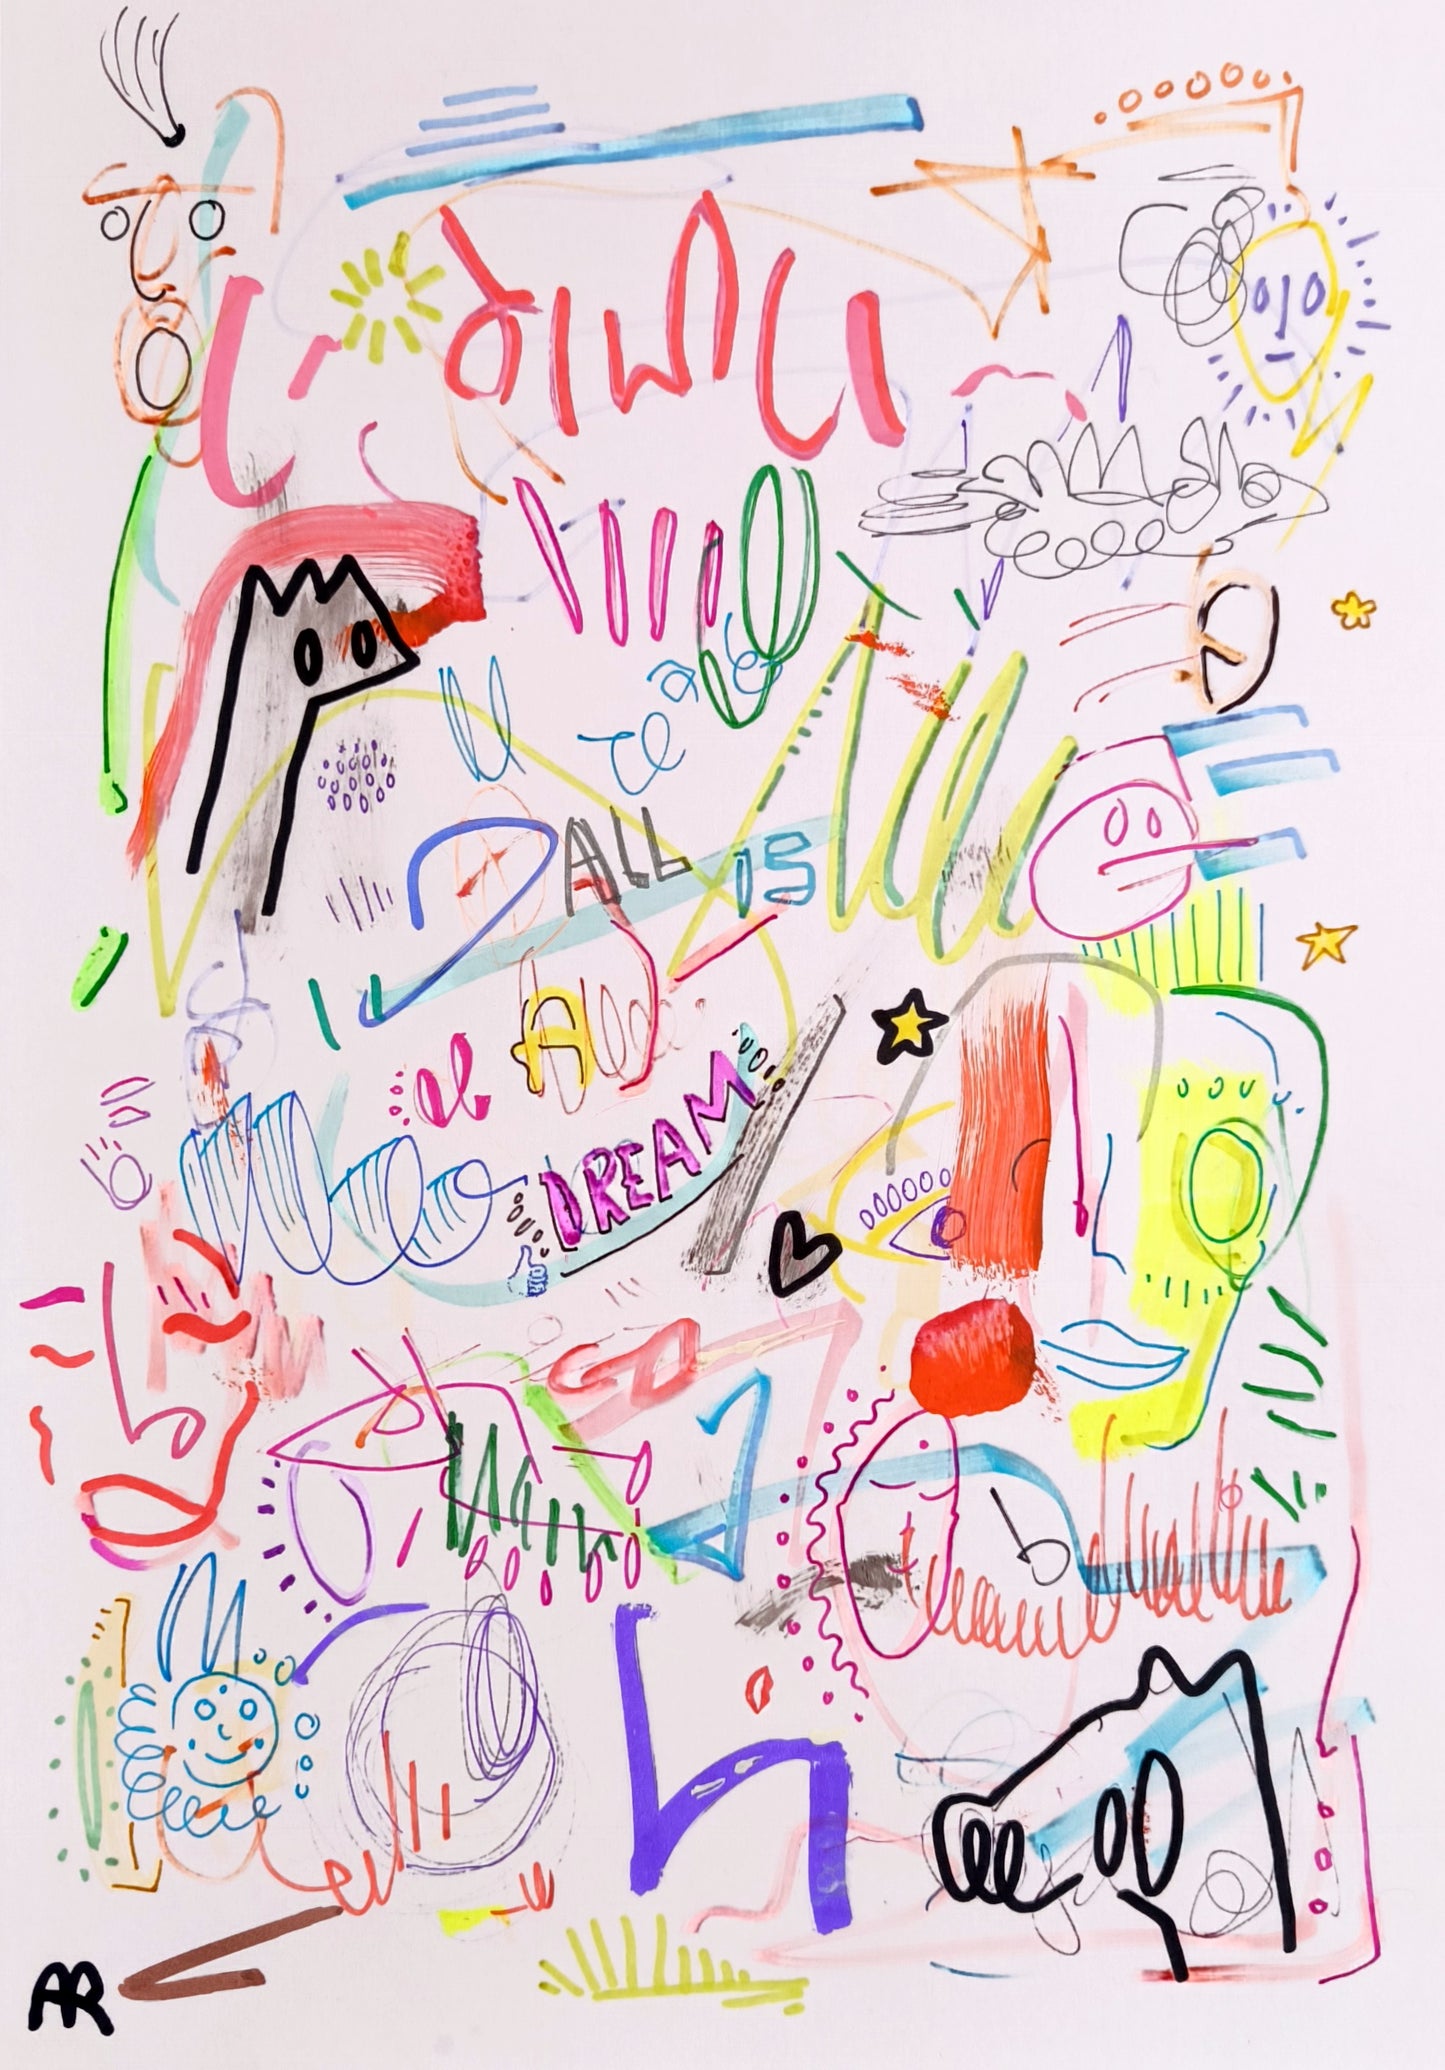 ALL
IS
A
DREAM
AR